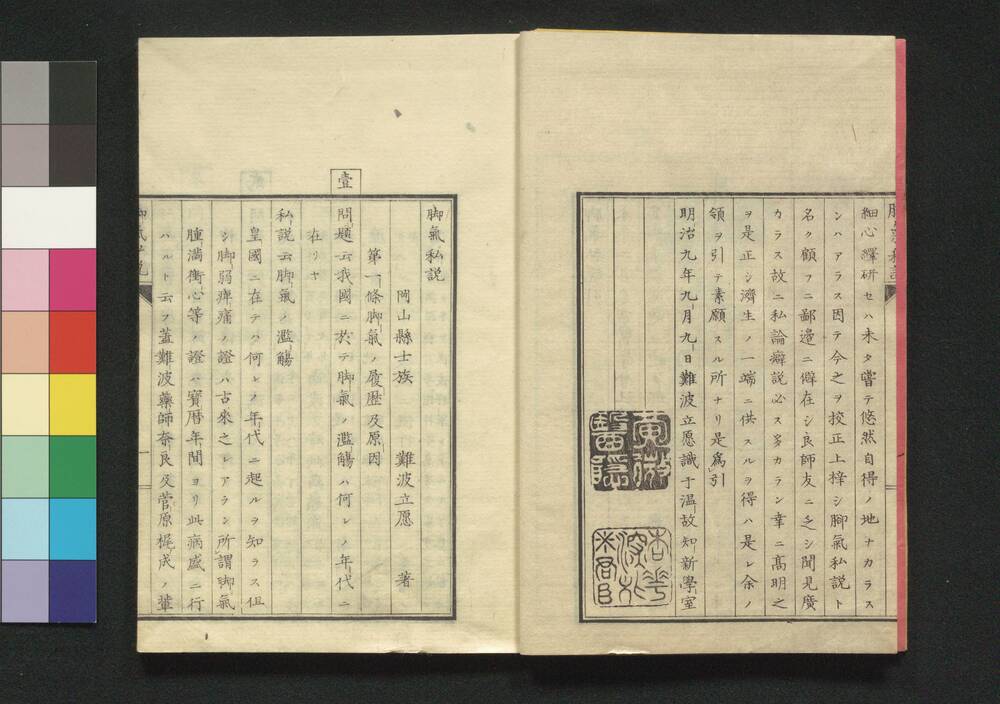 細心繹研セハ未タ嘗テ悠然自得ノ地ナカラス
ンハアラス因テ今之ヲ挍正上梓シ脚氣私説ト
名ク顧フニ鄙邉ニ僻在シ良師友ニ乏シ聞見廣
カラス故ニ私論癖説必ス多カラン幸ニ髙明之
ヲ是正シ濟生ノ一端ニ供スルヲ得ハ是レ余ノ
領ヲ引テ素願スル所ナリ是爲引
明治九年九月九日難波立愿識于温故知新學室
黄微
醫隱
脚氣私説
岡山縣士族 難波立愿 著
第一條脚氣ノ履歴及原因
壹
問題云我國ニ於テ脚氣ノ濫觴ハ何レノ年代ニ
在リヤ
私説云脚氣ノ濫觴
皇國ニ在テハ何レノ年代ニ起ルヲ知ラス但
シ脚弱痺痛ノ證ハ古來之レアラン所謂脚氣
腫満衝心等ノ證ハ寳暦年間ヨリ此病盛ニ行
ハルト云フ蓋難波藥師奈良及菅原梶成ノ輩